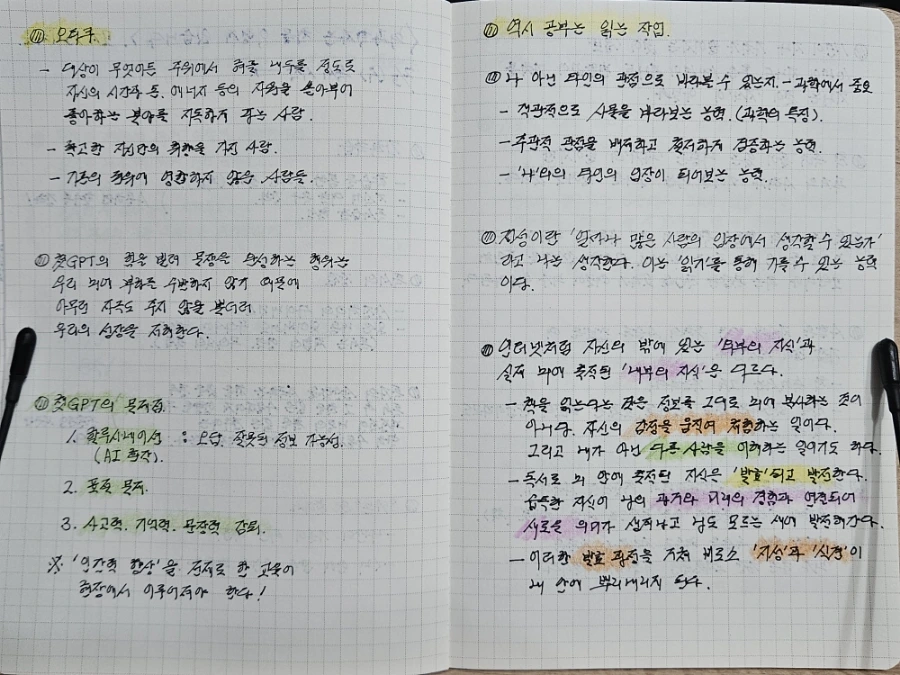 오타쿠.
- 대상이 무엇이든 주위에서 혀를 내두를 정도로
자신의 시간과 돈, 에너지 등의 자원을 쏟아부어
좋아하는 분야를 지독하게 파는 사람.
- 확고한 자신만의 취향을 가진 사람.
- 기존의 권위에 영합하지 않은 사람들.
챗GPT의 힘을 빌려 문장을 완성하는 행위는
우리 뇌에 부하를 수반하지 않기 때문에
아무런 자극도 주지 않을 뿐더러
우리의 성장을 저해한다.
챗GPT의 문제점.
1. 할루시네이션 : 오답, 잘못된 정보 가능성.
(AI 환각).
2. 표절 문제.
3. 사고력, 기억력, 문장력 감퇴.
※ '인간력 향상'을 전제로 한 교육이
현장에서 이루어져야 한다!
역시 공부는 읽는 작업.
나 아닌 타인의 관점으로 바라볼 수 있는지. - 과학에서 중요
- 객관적으로 사물을 바라보는 능력. (과학의 특징).
- 주관적 관점을 배제하고 철저하게 검증하는 능력.
- '나'외의 타인의 입장이 되어보는 능력.
지성이란 '얼마나 많은 사람의 입장에서 생각할 수 있는가'
라고 나는 생각한다. 이는 '읽기'를 통해 기를 수 있는 능력
이다.
인터넷처럼 자신의 밖에 있는 '외부의 지식'과
실제 뇌에 축적된 '내부의 지식'은 다르다.
- 책을 읽는다는 것은 정보를 그대로 뇌에 복사하는 것이
아니다. 자신의 감정을 움직여 저장하는 일이다.
그리고 내가 아닌 다른 사람을 이해하는 일이기도 하다.
- 독서로 뇌 안에 축적된 지식은 '발효'되고 발전한다.
습득한 지식이 나의 과거와 미래의 경험과 연결되어
새로운 의미가 생겨나고 나도 모르는 새에 발전해간다.
- 이러한 발효 과정을 거쳐 비로소 '지성'과 '식견'이
내 안에 뿌리내리게 된다.